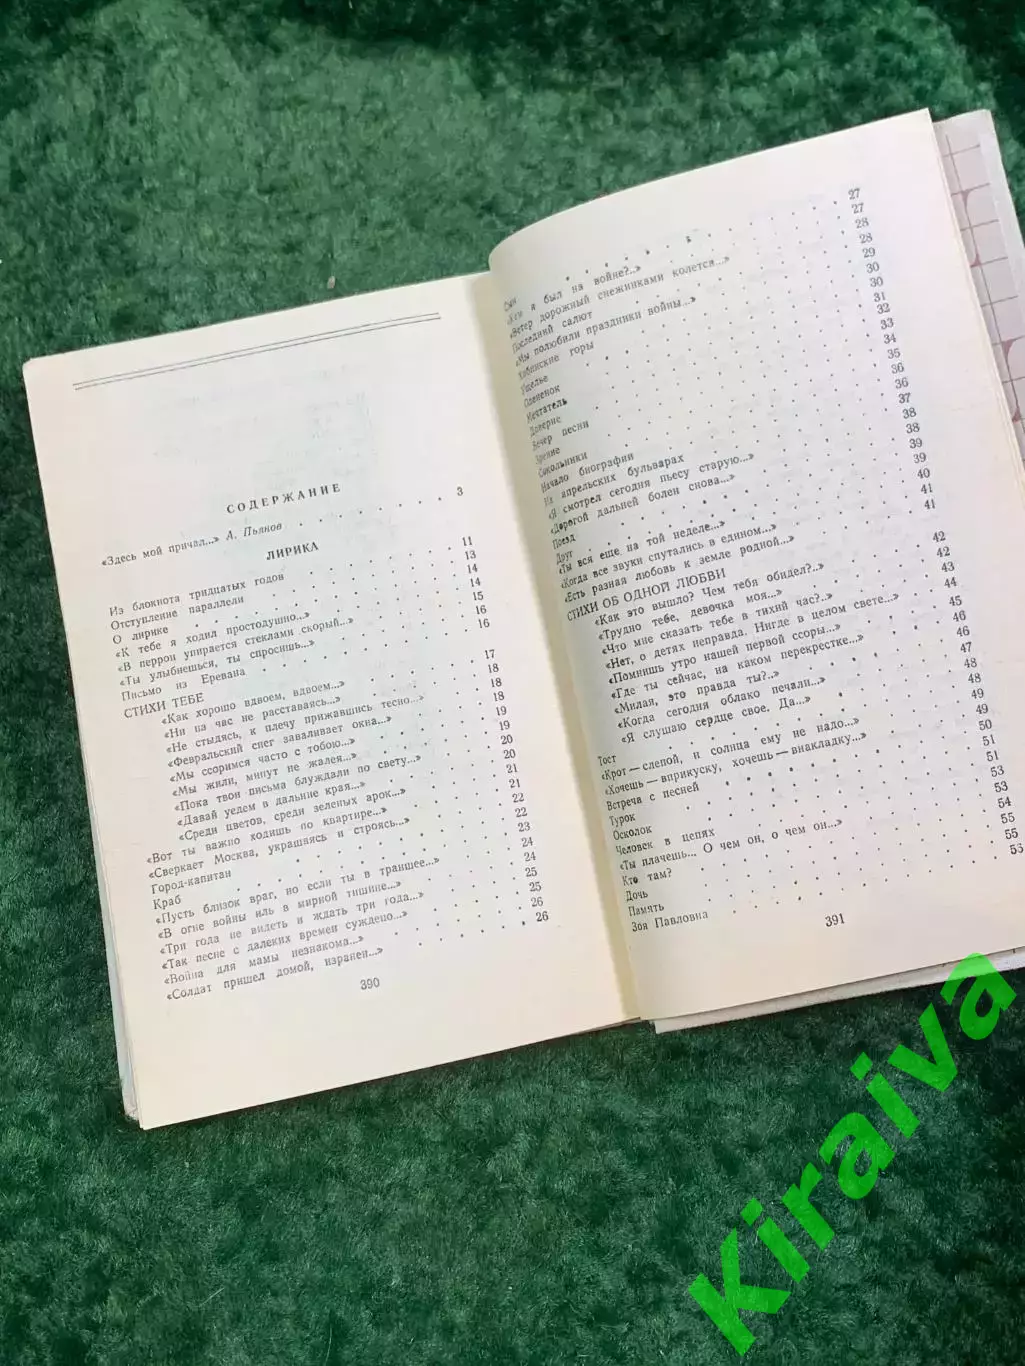 СОДЕРЖАНИЕ
«Здесь мой причал...» А. Пьянов . . . . . . . 3
ЛИРИКА
Из блокнота тридцатых годов . . . . . . . 11
Отступление параллели . . . . . . . 13
О лирике . . . . . . . 14
«К тебе я ходил простодушно...» . . . . . . . 14
«В перрон упирается стеклами скорый...» . . . . . . . 15
«Ты улыбнешься, ты спросишь...» . . . . . . . 16
Письмо из Еревана . . . . . . . 16
СТИХИ ТЕБЕ
«Как хорошо вдвоем, вдвоем...» . . . . . . . 17
«Ни на час не расставаясь...» . . . . . . . 18
«Не стыдясь, к плечу прижавшись тесно...» . . . . . . . 18
«Февральский снег заваливает окна...» . . . . . . . 18
«Мы ссоримся часто с тобою...» . . . . . . . 19
«Мы жили, минут не жалея...» . . . . . . . 19
«Пока твои письма блуждали по свету...» . . . . . . . 20
«Давай уедем в дальние края...» . . . . . . . 20
«Среди цветов, среди зеленых арок...» . . . . . . . 21
«Вот ты важно ходишь по квартире...» . . . . . . . 21
«Сверкает Москва, украшаясь и строясь...» . . . . . . . 22
Город-капитан . . . . . . . 22
Краб . . . . . . . 23
«Пусть близок враг, но если ты в траншее...» . . . . . . . 24
«В огне войны иль в мирной тишине...» . . . . . . . 24
«Три года не видеть и ждать три года...» . . . . . . . 25
«Так песне с далеких времен суждено...» . . . . . . . 25
«Война для мамы незнакома...» . . . . . . . 26
«Солдат пришел домой, изранен...» . . . . . . . 26
390
Сын . . . . . . . 27
«Кем я был на войне?..» . . . . . . . 27
«Ветер дорожный снежинками колется...» . . . . . . . 28
Последний салют . . . . . . . 28
«Мы полюбили праздники войны...» . . . . . . . 29
Хибинские горы . . . . . . . 30
Ущелье . . . . . . . 30
Олененок . . . . . . . 31
Мечтатель . . . . . . . 32
Доверие . . . . . . . 33
Вечер песни . . . . . . . 34
Зрение . . . . . . . 35
Сокольники . . . . . . . 36
Начало биографии . . . . . . . 36
На апрельских бульварах . . . . . . . 37
«Я смотрел сегодня пьесу старую...» . . . . . . . 38
«Дорогой дальней болен снова...» . . . . . . . 38
Поезд . . . . . . . 39
Друг . . . . . . . 39
«Ты вся еще на той неделе...» . . . . . . . 40
«Когда все звуки спутались в едином...» . . . . . . . 41
«Есть разная любовь к земле родной...» . . . . . . . 41
СТИХИ ОБ ОДНОЙ ЛЮБВИ
«Как это вышло? Чем тебя обидел?..» . . . . . . . 42
«Трудно тебе, девочка моя...» . . . . . . . 42
«Что мне сказать тебе в тихий час?..» . . . . . . . 43
«Нет, о детях неправда. Нигде в целом свете...» . . . . . . . 44
«Помнишь утро нашей первой ссоры...» . . . . . . . 45
«Где ты сейчас, на каком перекрестке...» . . . . . . . 46
«Милая, это правда ты?..» . . . . . . . 46
«Когда сегодня облако печали...» . . . . . . . 47
«Я слушаю сердце свое. Да...» . . . . . . . 48
Тост . . . . . . . 48
«Крот — слепой, и солнца ему не надо...» . . . . . . . 49
«Хочешь — вприкуску, хочешь — внакладку...» . . . . . . . 49
Встреча с песней . . . . . . . 50
Турок . . . . . . . 51
Осколок . . . . . . . 51
Человек в цепях . . . . . . . 53
«Ты плачешь... О чем он, о чем он...» . . . . . . . 53
Кто там? . . . . . . . 54
Дочь . . . . . . . 55
Память . . . . . . . 55
Зоя Павловна . . . . . . . 53
391
Kiraiva